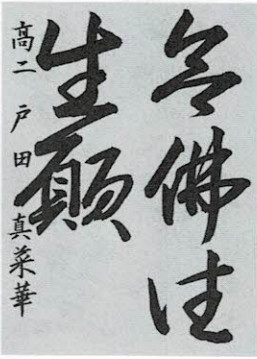 念佛往
生願
高二 戸田 真菜華